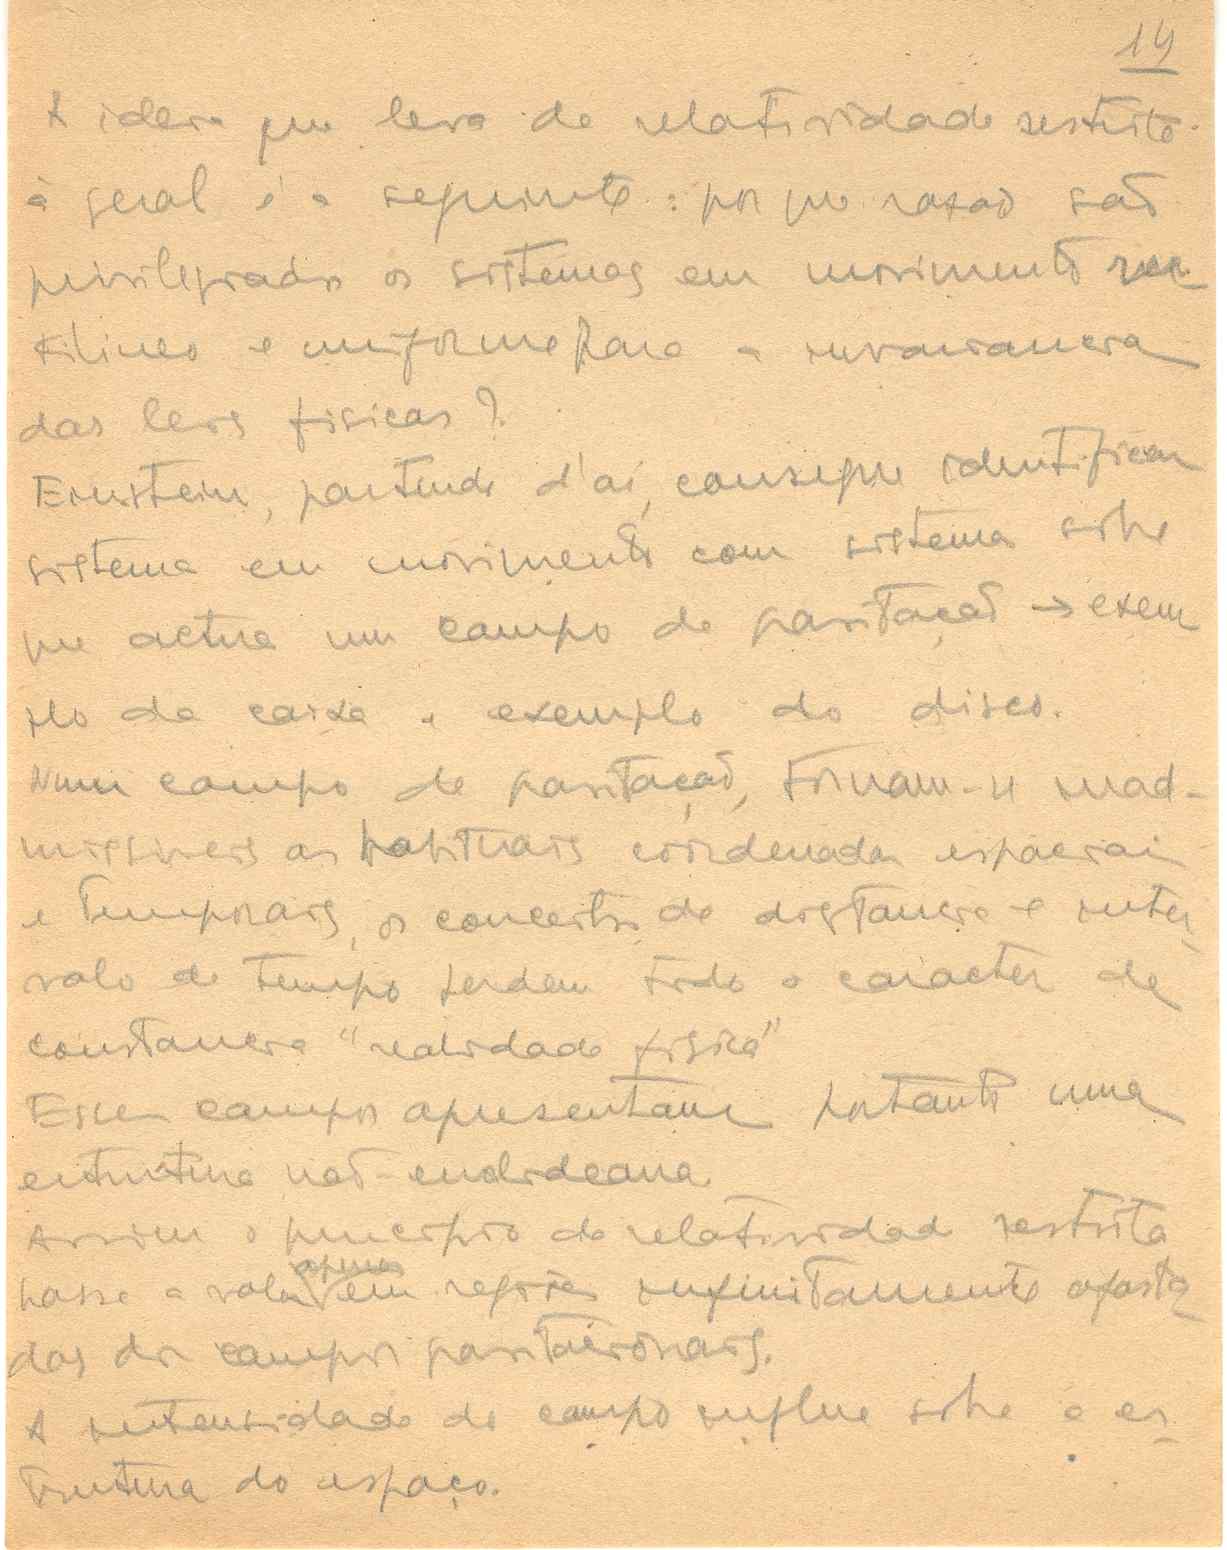 14
A ideia que leva da relatividade restrita
à geral é a seguinte: por que razão são
privilegiados os sistemas em movimento rec
tilineo e uniforme para a invariancia
das leis fisicas?
Einstein, partindo d'aí, consegue identificar
sistema em movimento com sistema sobre
que actua um campo de gravitação → exem
plo da caixa e exemplo do disco.
Num campo de gravitação, tornam-se inad-
missiveis as habituais coordenadas espaciais
e temporais, os conceitos de distancia e inter-
valo de tempo perdem todo o caracter de
constancia "realidade fisica"
Esses campos apresentam portanto uma
estrutura não-euclideana
Assim o principio da relatividade restrita
passa a valer apenas em regiões infinitamente afasta
das dos campos gravitacionais.
A intensidade do campo influe sobre a es-
trutura do espaço.